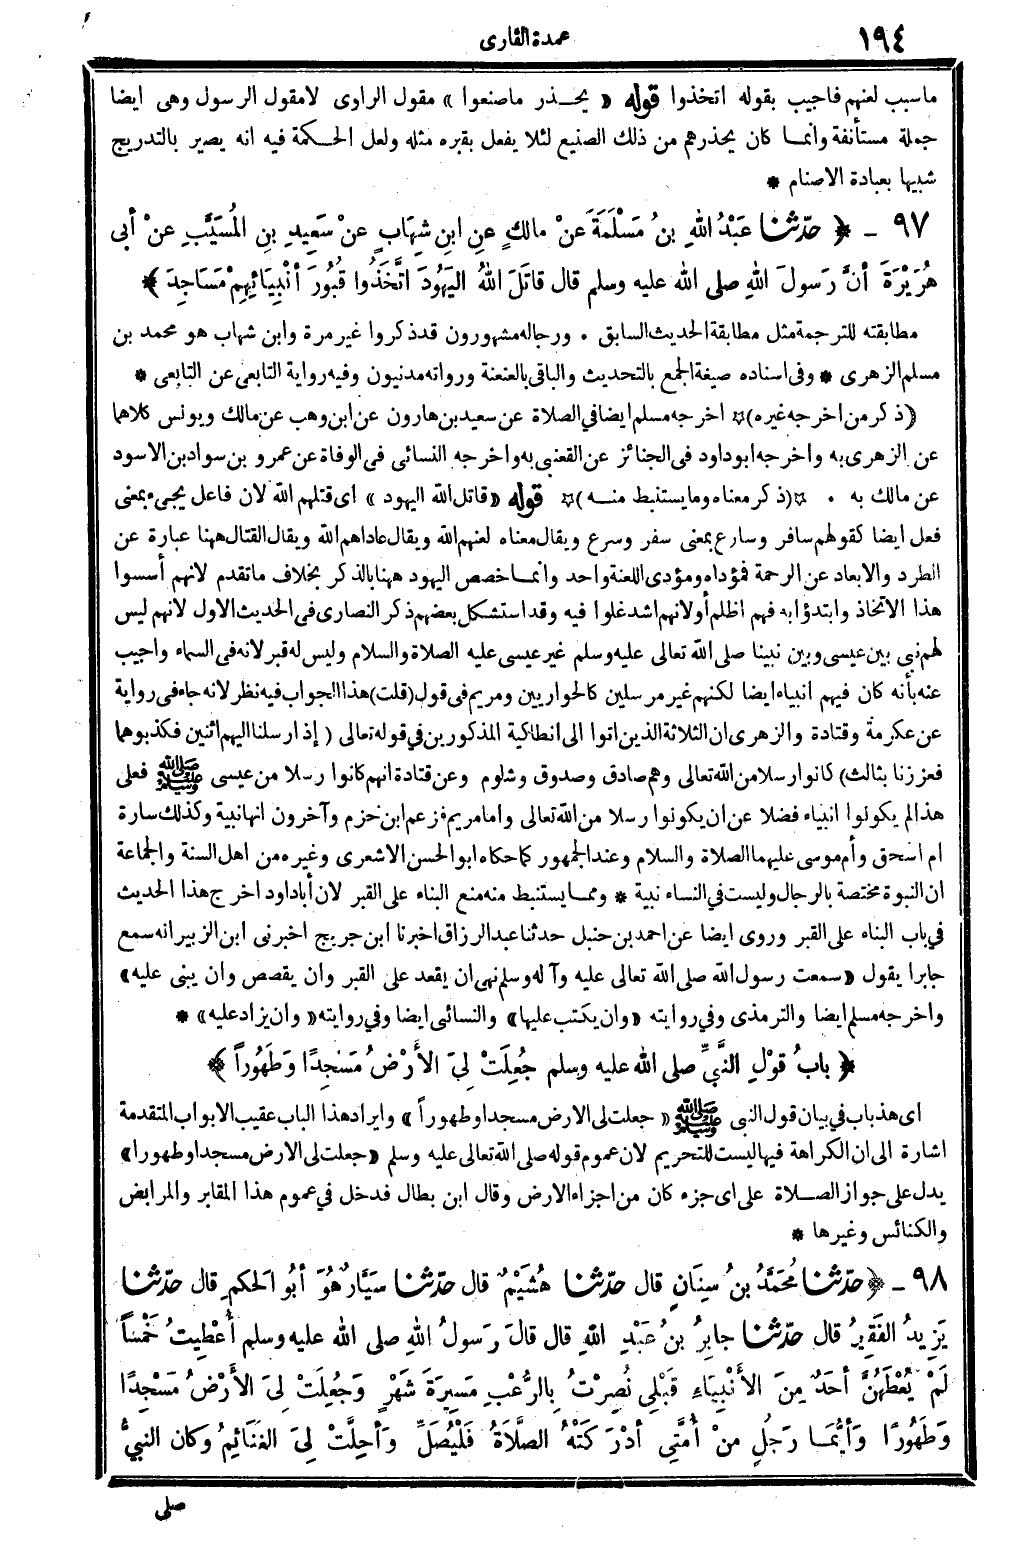 ١٩٤
عمدة القارى
ماسبب لعنهم فاجيب بقوله اتخذوا قوله « يحـذر ماصنعوا » مقول الراوى لامقول الرسول وهى ايضا
جملة مستأنفة وانمـا كان يحذرهم من ذلك الصنيع لئلا يفعل بقبره مثله ولعل الحـكمة فيه انه يصير بالتدريج
شبيها بعبادة الاصنام *
٩٧ ـ ﴿ حدّثنا عَبْدُ اللهِ بنُ مَسْلَمَةَ عَنْ مالكٍ عنِ ابنِ شِهَابٍ عنْ سَعِيدِ بنِ المُسَيَّبِ عنْ أبى
هُرَيْرَةَ أنَّ رَسولَ اللهِ صلى الله عليه وسلم قال قاتَلَ اللهُ اليَهُودَ اتَّخَذُوا قُبُورَ أنْبِيَائِهِمْ مَسَاجِدَ ﴾
مطابقته للترجمة مثل مطابقة الحديث السابق . ورجاله مشهورون قد ذكروا غير مرة وابن شهاب هو محمد بن
مسلم الزهرى * وفى اسناده صيغة الجمع بالتحديث والباقى بالعنعنة ورواته مدنيون وفيه رواية التابعى عن التابعى *
(ذكر من اخرجه غيره) ☆ اخرجه مسلم ايضا فى الصلاة عن سعيد بن هارون عن ابن وهب عن مالك ويونس كلاهما
عن الزهرى به واخرجه ابو داود فى الجنائز عن القعنبى به واخرجه النسائى فى الوفاة عن عمرو بن سواد بن الاسود
عن مالك به . ☆ (ذكر معناه وما يستنبط منـه) ☆ قوله « قاتل الله اليهود » اى قتلهم الله لان فاعل يجىء بمعنى
فعل ايضا كقولهم سافر وسارع بمعنى سفر وسرع ويقال معناه لعنهم الله ويقال عاداهم الله ويقال القتال ههنا عبارة عن
الطرد والابعاد عن الرحمة فمؤداه ومؤدى اللعنة واحد وانمـا خصص اليهود ههنا بالذكر بخلاف ماتقدم لانهم أسسوا
هذا الاتخاذ وابتدؤا به فهم اظلم أولانهم اشد غلوا فيه وقد استشكل بعضهم ذكر النصارى فى الحديث الاول لانهم ليس
لهم نبى بين عيسى وبين نبينا صلى الله تعالى عليه وسلم غير عيسى عليه الصلاة والسلام وليس له قبر لانه فى السماء واجيب
عنه بأنه كان فيهم انبياء ايضا لكنهم غير مرسلين كالحواريين ومريم فى قول (قلت) هذا الجواب فيه نظر لانه جاء فى رواية
عن عكرمة وقتادة والزهرى ان الثلاثة الذين اتوا الى انطاكية المذكورين فى قوله تعالى ( إذ ارسلنا اليهم اثنين فكذبوهما
فعززنا بثالث) كانوا رسلا من الله تعالى وهم صادق وصدوق وشلوم وعن قتادة انهم كانوا رسلا من عيسى ﷺ فعلى
هذا لم يكونوا انبياء فضلا عن ان يكونوا رسلا من الله تعالى واما مريم فزعم ابن حزم وآخرون انها نبية وكذلك سارة
ام اسحق وأم موسى عليهما الصلاة والسلام وعند الجمهور كما حكاه ابو الحسن الاشعرى وغيره من اهل السنة والجماعة
ان النبوة مختصة بالرجال وليست فى النساء نبية * وممـا يستنبط منه منع البناء على القبر لان أباداود اخرج هذا الحديث
فى باب البناء على القبر وروى ايضا عن احمد بن حنبل حدثنا عبد الرزاق اخبرنا ابن جريج اخبرنى ابن الزبير انه سمع
جابرا يقول « سمعت رسول الله صلى الله تعالى عليه وآله وسلم نهى ان يقعد على القبر وان يقصص وان يبنى عليه»
واخرجه مسلم ايضا والترمذى وفى روايته « وان يكتب عليها» والنسائى ايضا وفى روايته « وان يزاد عليه» *
﴿ بابُ قوْلِ النَّبيِّ صلى الله عليه وسلم جُعِلَتْ لِيَ الأَرْضُ مَسْجِدًا وَطَهُوراً ﴾
اى هذ باب فى بيان قول النبى ﷺ « جعلت لى الارض مسجدا وطهوراً » وايراد هذا الباب عقيب الابواب المتقدمة
اشارة الى ان الكراهة فيها ليست للتحريم لان عموم قوله صلى الله تعالى عليه وسلم «جعلت لى الارض مسجدا وطهورا»
يدل على جواز الصـلاة على اى جزء كان من اجزاء الارض وقال ابن بطال فدخل فى عموم هذا المقابر والمرابض
والكنائس وغيرها *
٩٨ ـ ﴿ حدّثنا مُحَمَّدُ بنُ سِنَانٍ قال حدّثنا هُشَيْمٌ قال حدّثنا سَيَّارٌ هُوَ أبُو الحكمِ قال حدّثنا
يَزِيدُ الفَقِيرُ قال حدّثنا جابِرُ بنُ عَبْدِ اللهِ قال قالَ رَسولُ اللهِ صلى الله عليه وسلم أُعْطِيتُ خَمْساً
لَمْ يُعْطَهُنَّ أحَدٌ مِنَ الأَنْبِيَاءِ قَبْلِى نُصِرْتُ بِالرُّعْبِ مَسِيرَةَ شَهْرٍ وَجُعِلَتْ لِىَ الأَرْضُ مَسْجِدًا
وَطَهُورًا وَأيُّمَـا رَجُلٍ مِنْ أُمَّتِى أدْرَكَتْهُ الصَّلَاةُ فَلْيُصَلِّ وَأُحِلَّتْ لِىَ الغَنَائِمُ وَكان النبيُّ
صلى